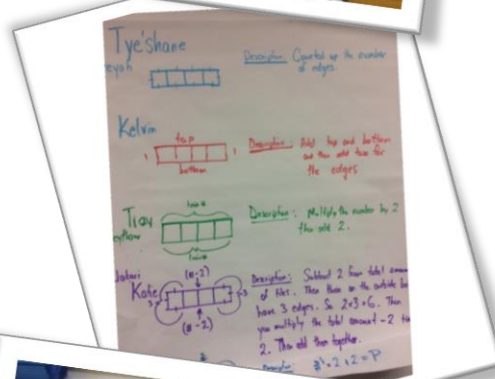 Tye'shane
Description: Counted up the number
of edges.
Kelvin
top
1 1
bottom
Description: Add top and bottom
and then add two for
the edges
Troy
Description: Multiply the number by 2
then add 2.
Jabari
Kate
(n-2)
3 3
(n-2)
Description: Subtract 2 from total
of tiles. Then those on the outside
have 3 edges. So 2×3=6. Then
you multiply the total amount -2
2. Then add them together.